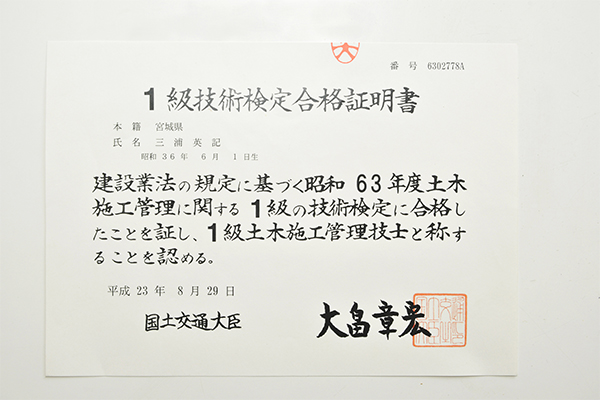 番号 6302778A
1級技術検定合格証明書
本籍 宮城県
氏名 三浦英記
昭和36年 6月 1日生
建設業法の規定に基づく昭和63年度土木
施工管理に関する1級の技術検定に合格し
たことを証し、1級土木施工管理技士と称す
ることを認める。
平成23年 8月29日
国土交通大臣
大畠章宏